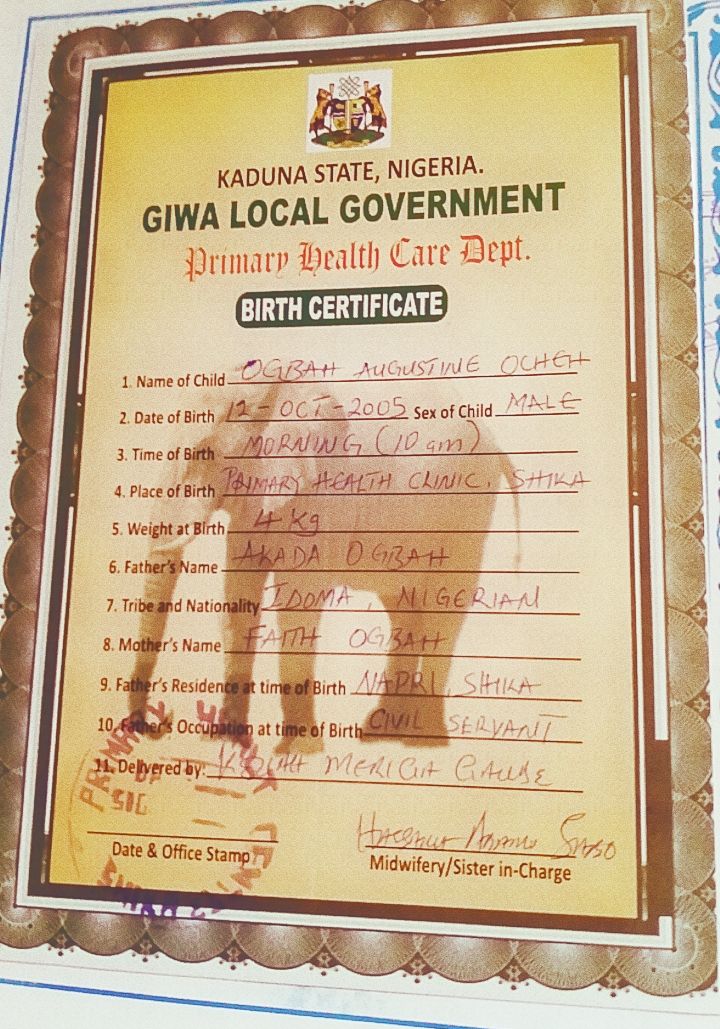 KADUNA STATE, NIGERIA.
GIWA LOCAL GOVERNMENT
Primary Health Care Dept.
BIRTH CERTIFICATE
1. Name of Child OGBAH AUGUSTINE OCHEH
2. Date of Birth 12-OCT-2005 Sex of Child MALE
3. Time of Birth MORNING (10 am)
4. Place of Birth PRIMARY HEALTH CLINIC, SHIKA
5. Weight at Birth 4 kg
6. Father's Name AKADA OGBAH
7. Tribe and Nationality IDOMA, NIGERIAN
8. Mother's Name FAITH OGBAH
9. Father's Residence at time of Birth NAPRI, SHIKA
10. Father's Occupation at time of Birth CIVIL SERVANT
11. Delivered by:
Date & Office Stamp
Midwifery/Sister in-Charge